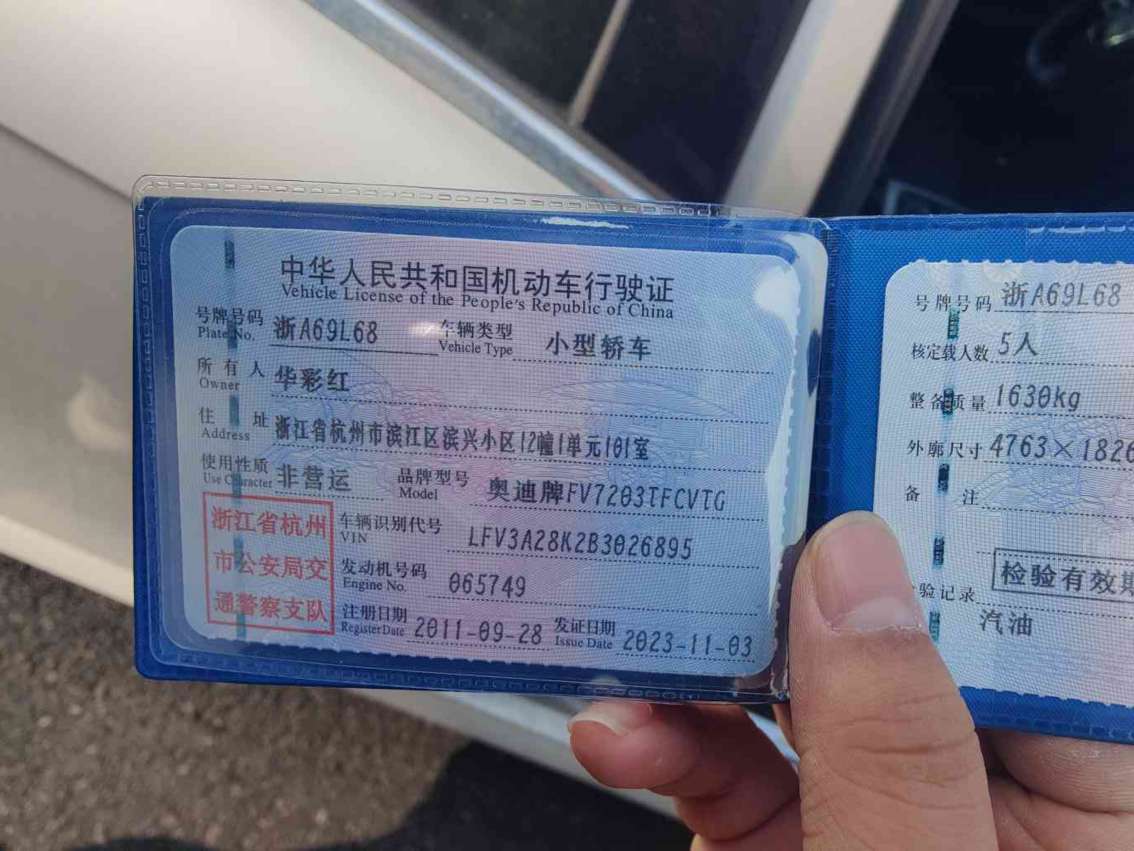 中华人民共和国机动车行驶证
Vehicle License of the People's Republic of China
号牌号码 浙A69L68 车辆类型 小型轿车
Plate No. Vehicle Type
所有人 华彩红
Owner
住址 浙江省杭州市滨江区滨兴小区12幢1单元101室
Address
使用性质 非营运 品牌型号 奥迪牌FV7203TFCVTG
Use Character Model
浙江省杭州
市公安局交
通警察支队
车辆识别代号 LFV3A28K2B3026895
VIN
发动机号码 065749
Engine No.
注册日期 2011-09-28 发证日期 2023-11-03
Register Date Issue Date
号牌号码 浙A69L68
核定载人数 5人
整备质量 1630kg
外廓尺寸 4763×1826
备注
检验有效期
验记录
汽油